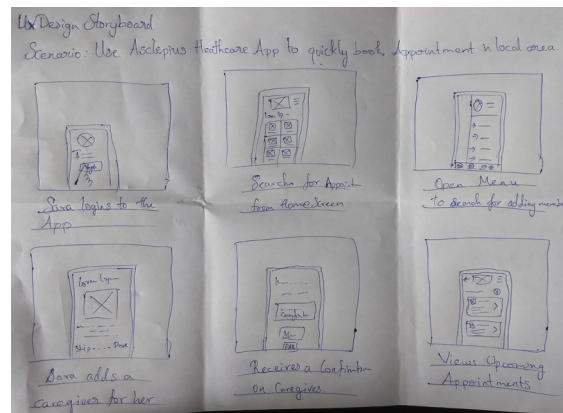 Ux Design Storyboard
Scenario: Use Asclepius Healthcare App to quickly book Appointment in local area.
Sara logins to the
App
Search for Appoint
from HomeScreen
Open Menu
To search for adding member
Skip
Sara adds a
caregiver for her
Receives a
on Caregivers.
Views Upcoming
Appointments